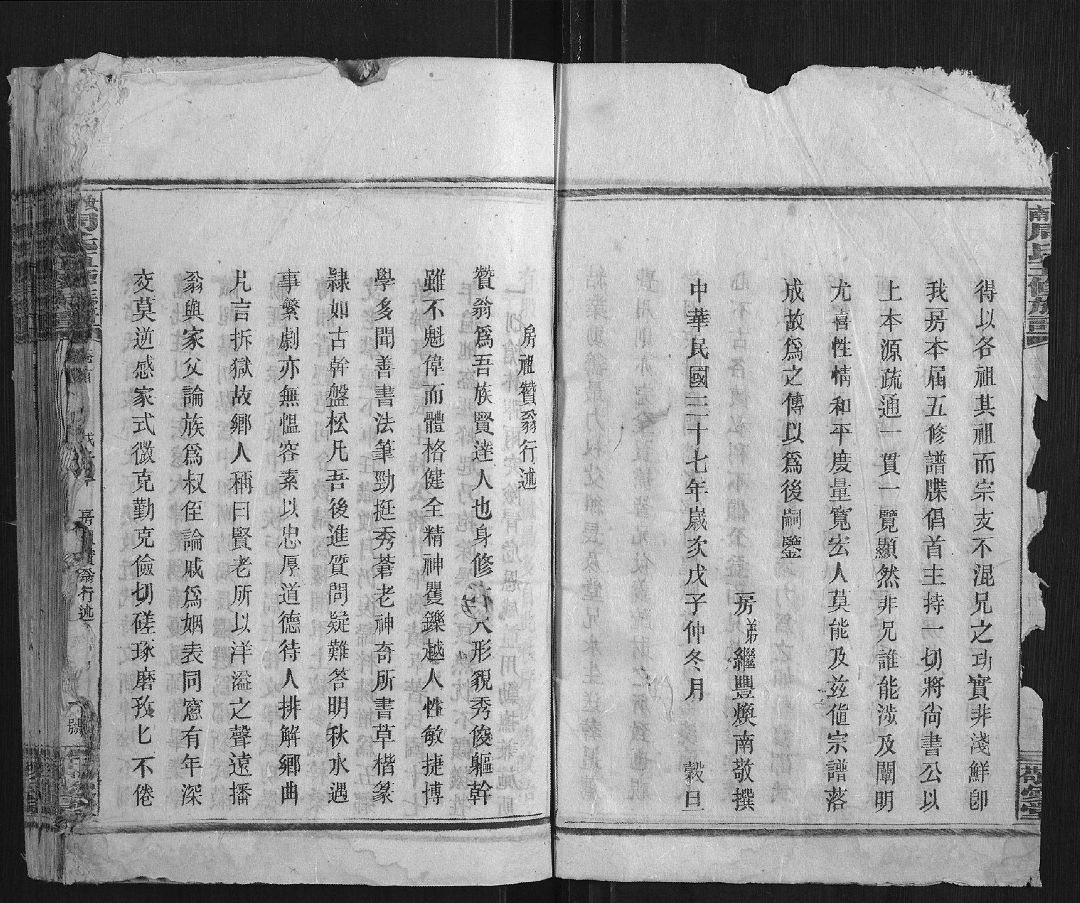 得以各祖其祖而宗支不混兄之功實非淺鮮卽
我房本届五修譜牒倡首主持一切將尙書公以
上本源疏通一貫一覽顯然非兄誰能涉及闡明
尤喜性情和平度量寬宏人莫能及兹值宗譜落
成故爲之傳以爲後嗣鑒
房弟繼豐煥南敬撰
中華民國三十七年歲次戊子仲冬月 穀旦
房祖贊翁行述
贊翁爲吾族賢達人也身修 八形貌秀俊軀幹
雖不魁偉而體格健全精神矍鑠越人性敏捷博
學多聞善書法筆勁挺秀蒼老神奇所書草楷篆
隸如古幹盤松凡吾後進質問疑難答明秋水遇
事繁劇亦無慍容素以忠厚道德待人排解鄉曲
片言拆獄故鄉人稱曰賢老所以洋溢之聲遠播
翁與家父論族爲叔侄論戚爲姻表同窻有年深
交莫逆感家式微克勤克儉切磋琢磨孜匕不倦